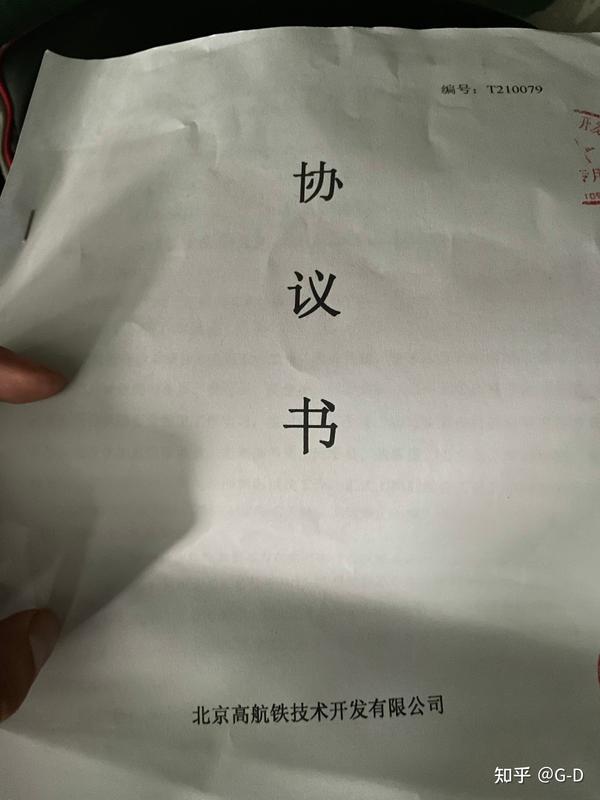 编号：T210079
协
议
书
北京高航铁技术开发有限公司
知乎 @G-D